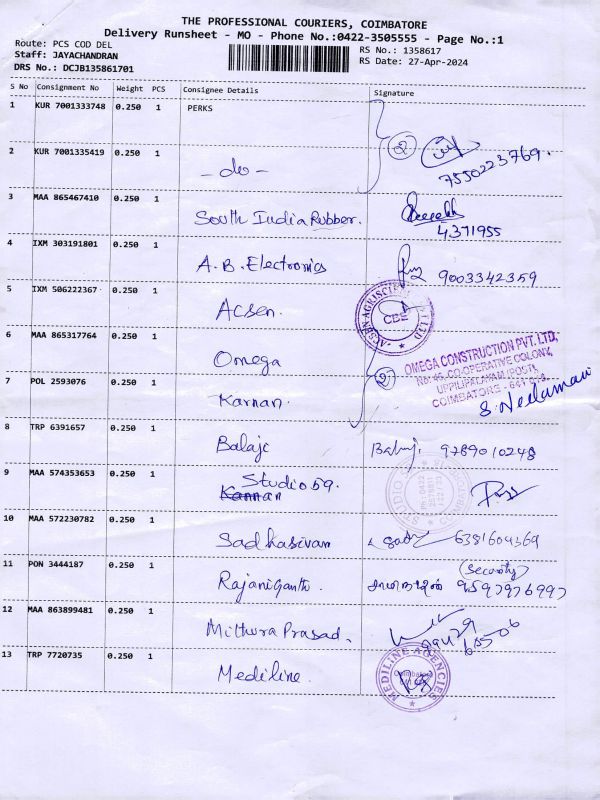 THE PROFESSIONAL COURIERS, COIMBATORE
Delivery Runsheet - MO - Phone No.:0422-3505555 - Page No.:1
Route: PCS COD DEL
Staff: JAYACHANDRAN
DRS No.: DCJB135861701
RS No.: 1358617
RS Date: 27-Apr-2024
S No Consignment No Weight PCS Consignee Details Signature
1 KUR 7001333748 0.250 1 PERKS
2 KUR 7001335419 0.250 1 - do - 7550223769.
3 MAA 865467410 0.250 1 South India Rubber. 4371955
4 IXM 303191801 0.250 1 A.B. Electronics 9003342359
5 IXM 506222367 0.250 1 Acsen. CBE
6 MAA 865317764 0.250 1 Omega
OMEGA CONSTRUCTION PVT. LTD,
NO: 46, CO-OPERATIVE COLONY,
UPPILIPALAYAM (POST),
COIMBATORE - 641 015.
7 POL 2593076 0.250 1 Karnan.
8 TRP 6391657 0.250 1 Balaji Balaji 9789010248
9 MAA 574353653 0.250 1 Studio 59.
10 MAA 572230782 0.250 1 Sadhasivam 6381604369
11 PON 3444187 0.250 1 Rajaniganth. (Security) 9597976997
12 MAA 863899481 0.250 1 Mithura Prasad.
13 TRP 7720735 0.250 1 Mediline.
MEDILINE AGENCIES